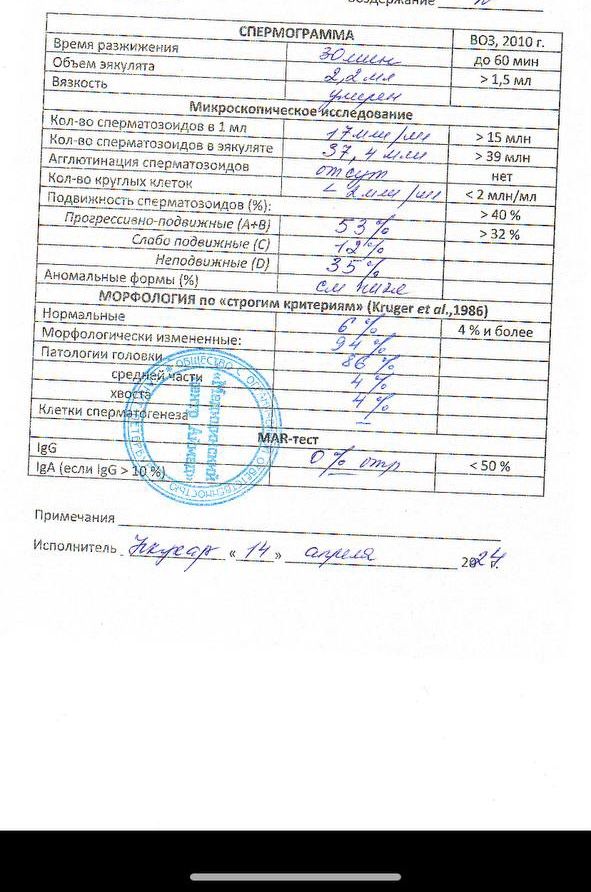 воздержание
СПЕРМОГРАММА ВОЗ, 2010 г.
Время разжижения 30 мин до 60 мин
Объем эякулята 2,2 мл > 1,5 мл
Вязкость умерен
Микроскопическое исследование
Кол-во сперматозоидов в 1 мл 17 млн/мл > 15 млн
Кол-во сперматозоидов в эякуляте 37,4 млн > 39 млн
Агглютинация сперматозоидов отсут нет
Кол-во круглых клеток < 2 млн/мл < 2 млн/мл
Подвижность сперматозоидов (%): > 40 %
Прогрессивно-подвижные (A+B) 53% > 32 %
Слабо подвижные (C) 12%
Неподвижные (D) 35%
Аномальные формы (%) см ниже
МОРФОЛОГИЯ по «строгим критериям» (Kruger et al.,1986)
Нормальные 6 % 4 % и более
Морфологически измененные: 94 %
Патологии головки 86 %
средней части 4 %
хвоста 4 %
Клетки сперматогенеза –
MAR-тест
IgG 0 % отр < 50 %
IgA (если IgG > 10 %)
Примечания
Исполнитель «14» апреля 2024 г.